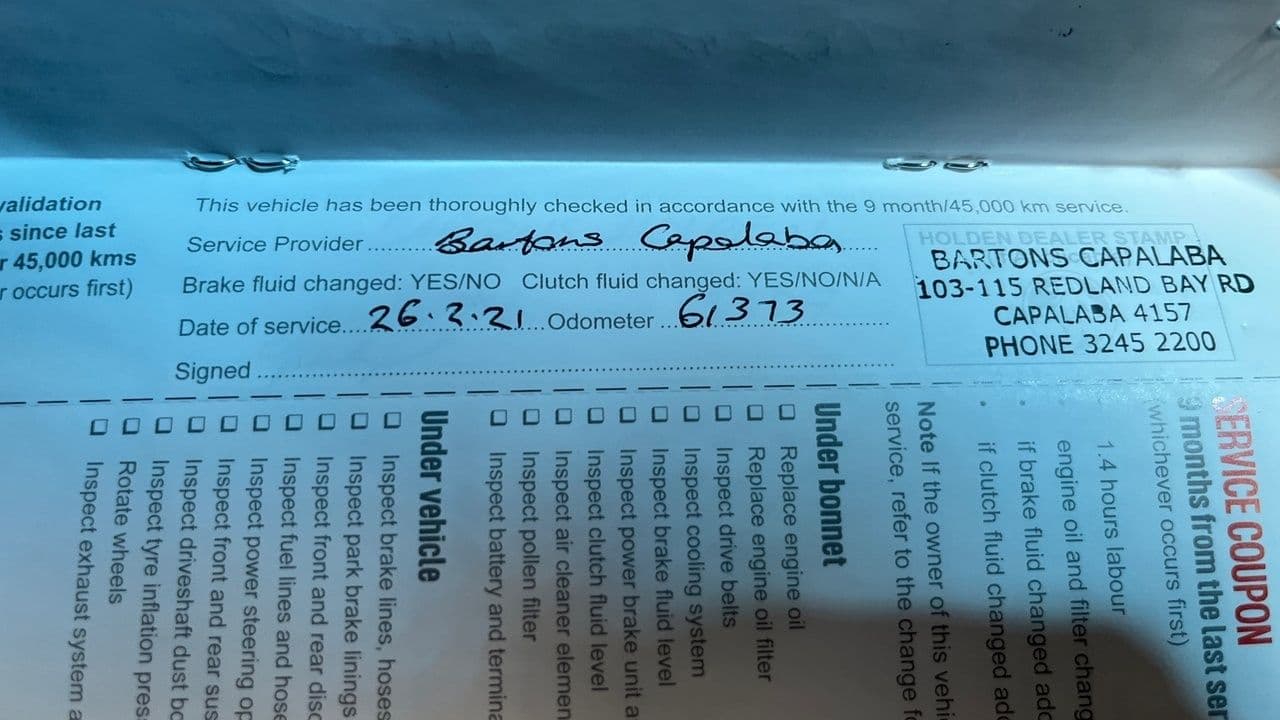 validation
since last
45,000 kms
occurs first)
This vehicle has been thoroughly checked in accordance with the 9 month/45,000 km service.
Service Provider Bartons Capalaba
Brake fluid changed: YES/NO Clutch fluid changed: YES/NO/N/A
Date of service 26.2.21 Odometer 61373
Signed
HOLDEN DEALER STAMP
BARTONS CAPALABA
103-115 REDLAND BAY RD
CAPALABA 4157
PHONE 3245 2200
SERVICE COUPON
9 months from the last
whichever occurs first)
1.4 hours labour
engine oil and filter
if brake fluid changed
• if clutch fluid changed
Note If the owner of this
service, refer to the change
Under bonnet
☐ Replace engine oil
☐ Replace engine oil filter
☐ Inspect drive belts
☐ Inspect cooling system
☐ Inspect brake fluid level
☐ Inspect power brake unit
☐ Inspect clutch fluid level
☐ Inspect air cleaner
☐ Inspect pollen filter
☐ Inspect battery and
Under vehicle
☐ Inspect brake lines, hoses
☐ Inspect park brake linings
☐ Inspect front and rear
☐ Inspect fuel lines and
☐ Inspect power steering
☐ Inspect front and rear
☐ Inspect driveshaft dust
☐ Inspect tyre inflation
☐ Rotate wheels
☐ Inspect exhaust system